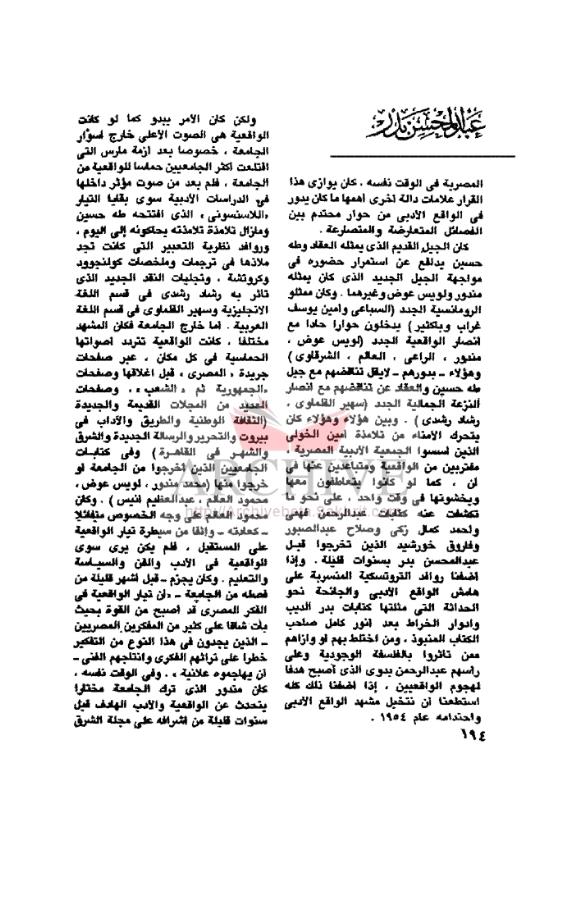 عبد المحسن بدر
المصرية فى الوقت نفسه . كان يوازى هذا
القرار علامات دالة اخرى اهمها ما كان يدور
فى الواقع الأدبى من حوار محتدم بين
الفصائل المتعارضة والمتصارعة .
كان الجيل القديم الذى يمثله العقاد وطه
حسين يدافع عن استمرار حضوره فى
مواجهة الجيل الجديد الذى كان يمثله
مندور ولويس عوض وغيرهما . وكان ممثلو
الرومانسية الجدد (السباعى وامين يوسف
غراب وباكثير) يدخلون حوارا حادا مع
انصار الواقعية الجدد (لويس عوض ،
مندور ، الراعى ، العالم ، الشرقاوى)
وهؤلاء ــ بدورهم ــ لايقل تناقضهم مع جيل
طه حسين والعقاد عن تناقضهم مع انصار
النزعة الجمالية الجدد (سهير القلماوى ،
رشاد رشدى) . وبين هؤلاء وهؤلاء كان
يتحرك الأمناء من تلامذة امين الخولى
الذين اسسوا الجمعية الأدبية المصرية ،
مقتربين من الواقعية ومتباعدين عنها فى
ان ، كما لو كانوا يتعاطفون معها
ويخشونها فى وقت واحد ، على نحو ما
تكشفت عنه كتابات عبدالرحمن فهمى
واحمد كمال زكى وصلاح عبدالصبور
وفاروق خورشيد الذين تخرجوا قبل
عبدالمحسن بدر بسنوات قليلة . وإذا
أضفنا روافد التروتسكية المنسربة على
هامش الواقع الأدبى والجانحة نحو
الحداثة التى مثلتها كتابات بدر الديب
وادوار الخراط بعد انور كامل صاحب
الكتاب المنبوذ ، ومن اختلط بهم او وازاهم
ممن تاثروا بالفلسفة الوجودية وعلى
رأسهم عبدالرحمن بدوى الذى أصبح هدفا
لهجوم الواقعيين ، إذا اضفنا ذلك كله
استطعنا ان نتخيل مشهد الواقع الأدبى
واحتدامه عام ١٩٥٤ .
ولكن كان الأمر يبدو كما لو كانت
الواقعية هى الصوت الأعلى خارج أسوار
الجامعة ، خصوصا بعد ازمة مارس التى
اقتلعت أكثر الجامعيين حماسا للواقعية من
الجامعة ، فلم يعد من صوت مؤثر داخلها
فى الدراسات الأدبية سوى بقايا التيار
«اللانسونى» الذى افتتحه طه حسين
ومازال تلامذة تلامذته يحاكونه إلى اليوم ،
وروافد نظرية التعبير التى كانت تجد
ملاذها فى ترجمات وملخصات كولنجوود
وكروتشة ، وتجليات النقد الجديد الذى
تاثر به رشاد رشدى فى قسم اللغة
الانجليزية وسهير القلماوى فى قسم اللغة
العربية . اما خارج الجامعة فكان المشهد
مختلفا ، كانت الواقعية تتردد اصواتها
الحماسية فى كل مكان ، عبر صفحات
جريدة «المصرى» قبل اغلاقها وصفحات
«الجمهورية» ثم «الشعب» . وصفحات
العديد من المجلات القديمة والجديدة
(الثقافة الوطنية والطريق والآداب فى
بيروت والتحرير والرسالة الجديدة والشرق
والشهر فى القاهرة) وفى كتابات
الجامعيين الذين اخرجوا من الجامعة او
خرجوا منها (محمد مندور ، لويس عوض ،
محمود العالم ، عبدالعظيم انيس) . وكان
محمود العالم على وجه الخصوص متفائلا
ــ كعادته ــ واثقا من سيطرة تيار الواقعية
على المستقبل ، فلم يكن يرى سوى
الواقعية فى الأدب والفن والسياسة
والتعليم . وكان يجزم ــ قبل أشهر قليلة من
فصله من الجامعة ــ «ان تيار الواقعية فى
الفكر المصرى قد أصبح من القوة بحيث
بات شاقا على كثير من المفكرين المصريين
ــ الذين يجدون فى هذا النوع من التفكير
خطرا على تراثهم الفكرى وانتاجهم الفنى ــ
أن يهاجموه علانية» . وفى الوقت نفسه ،
كان مندور الذى ترك الجامعة مختارا
يتحدث عن الواقعية والأدب الهادف قبل
سنوات قليلة من اشرافه على مجلة الشرق
١٩٤
ARCHIVE